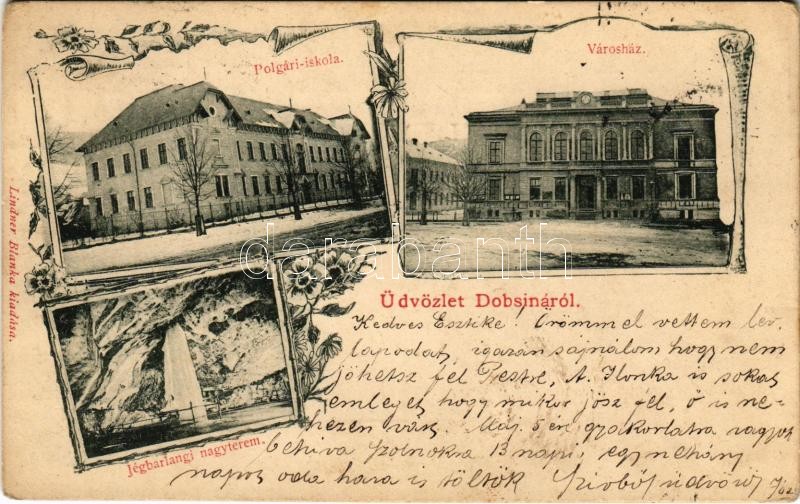 Polgári-iskola.
Városház.
Lindner Blanka kiadása.
darabanth
Üdvözlet Dobsináról.
Jégbarlangi nagyterem.
Kedves Esztike! Örömmel vettem lev.
lapodat, igazán sajnálom hogy nem
jöhetsz fel Pestre, A. Ilonka is sokat
emleget hogy mikor jösz fel, ő is ne-
hezen vár. Máj. 5 én gyakorlatra vagyok
behiva Szolnokra 13 napi, egynehány
napot oda hara is töltök Szivből üdvöz